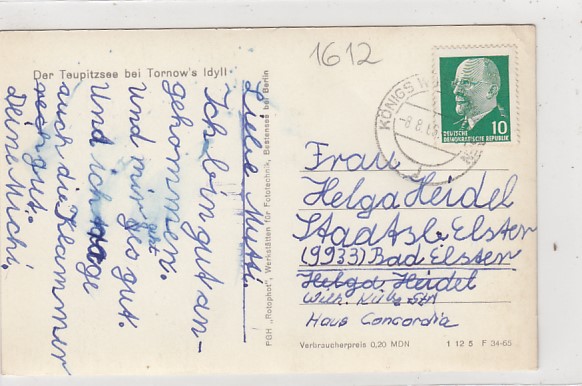 1612
Der Teupitzsee bei Tornow's Idyll
Liebe Mutti.
Ich bin gut an-
gekommen.
Und mir gehts gut.
Und ich trage
auch die Klammer
gut.
Deine Michi.
PGH „Rotophot", Werkstätten für Fototechnik, Bestensee bei Berlin
KÖNIGS WU
-8.8.6
DEUTSCHE
DEMOKRATISCHE REPUBLIK
10
Frau
Helga Heidel
Staatsb. Elster
(9933) Bad Elster
Helga Heidel
Wilh. Külz Str.
Haus Concordia
Verbraucherpreis 0,20 MDN
1 12 5 F 34-65